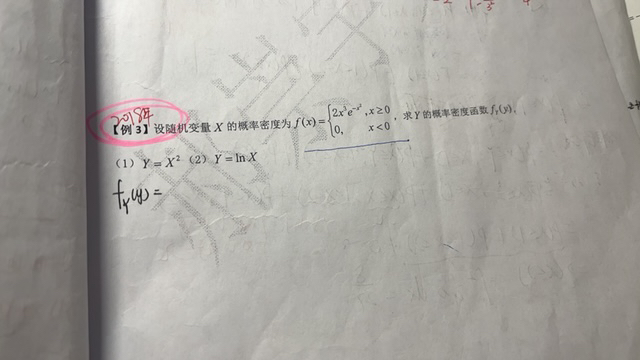 2018年
【例 3】设随机变量 X 的概率密度为 f(x)={2x³e^{-x²}, x≥0; 0, x<0, 求 Y 的概率密度函数 f_Y(y).
(1) Y=X² (2) Y=ln X
f_Y(y)=